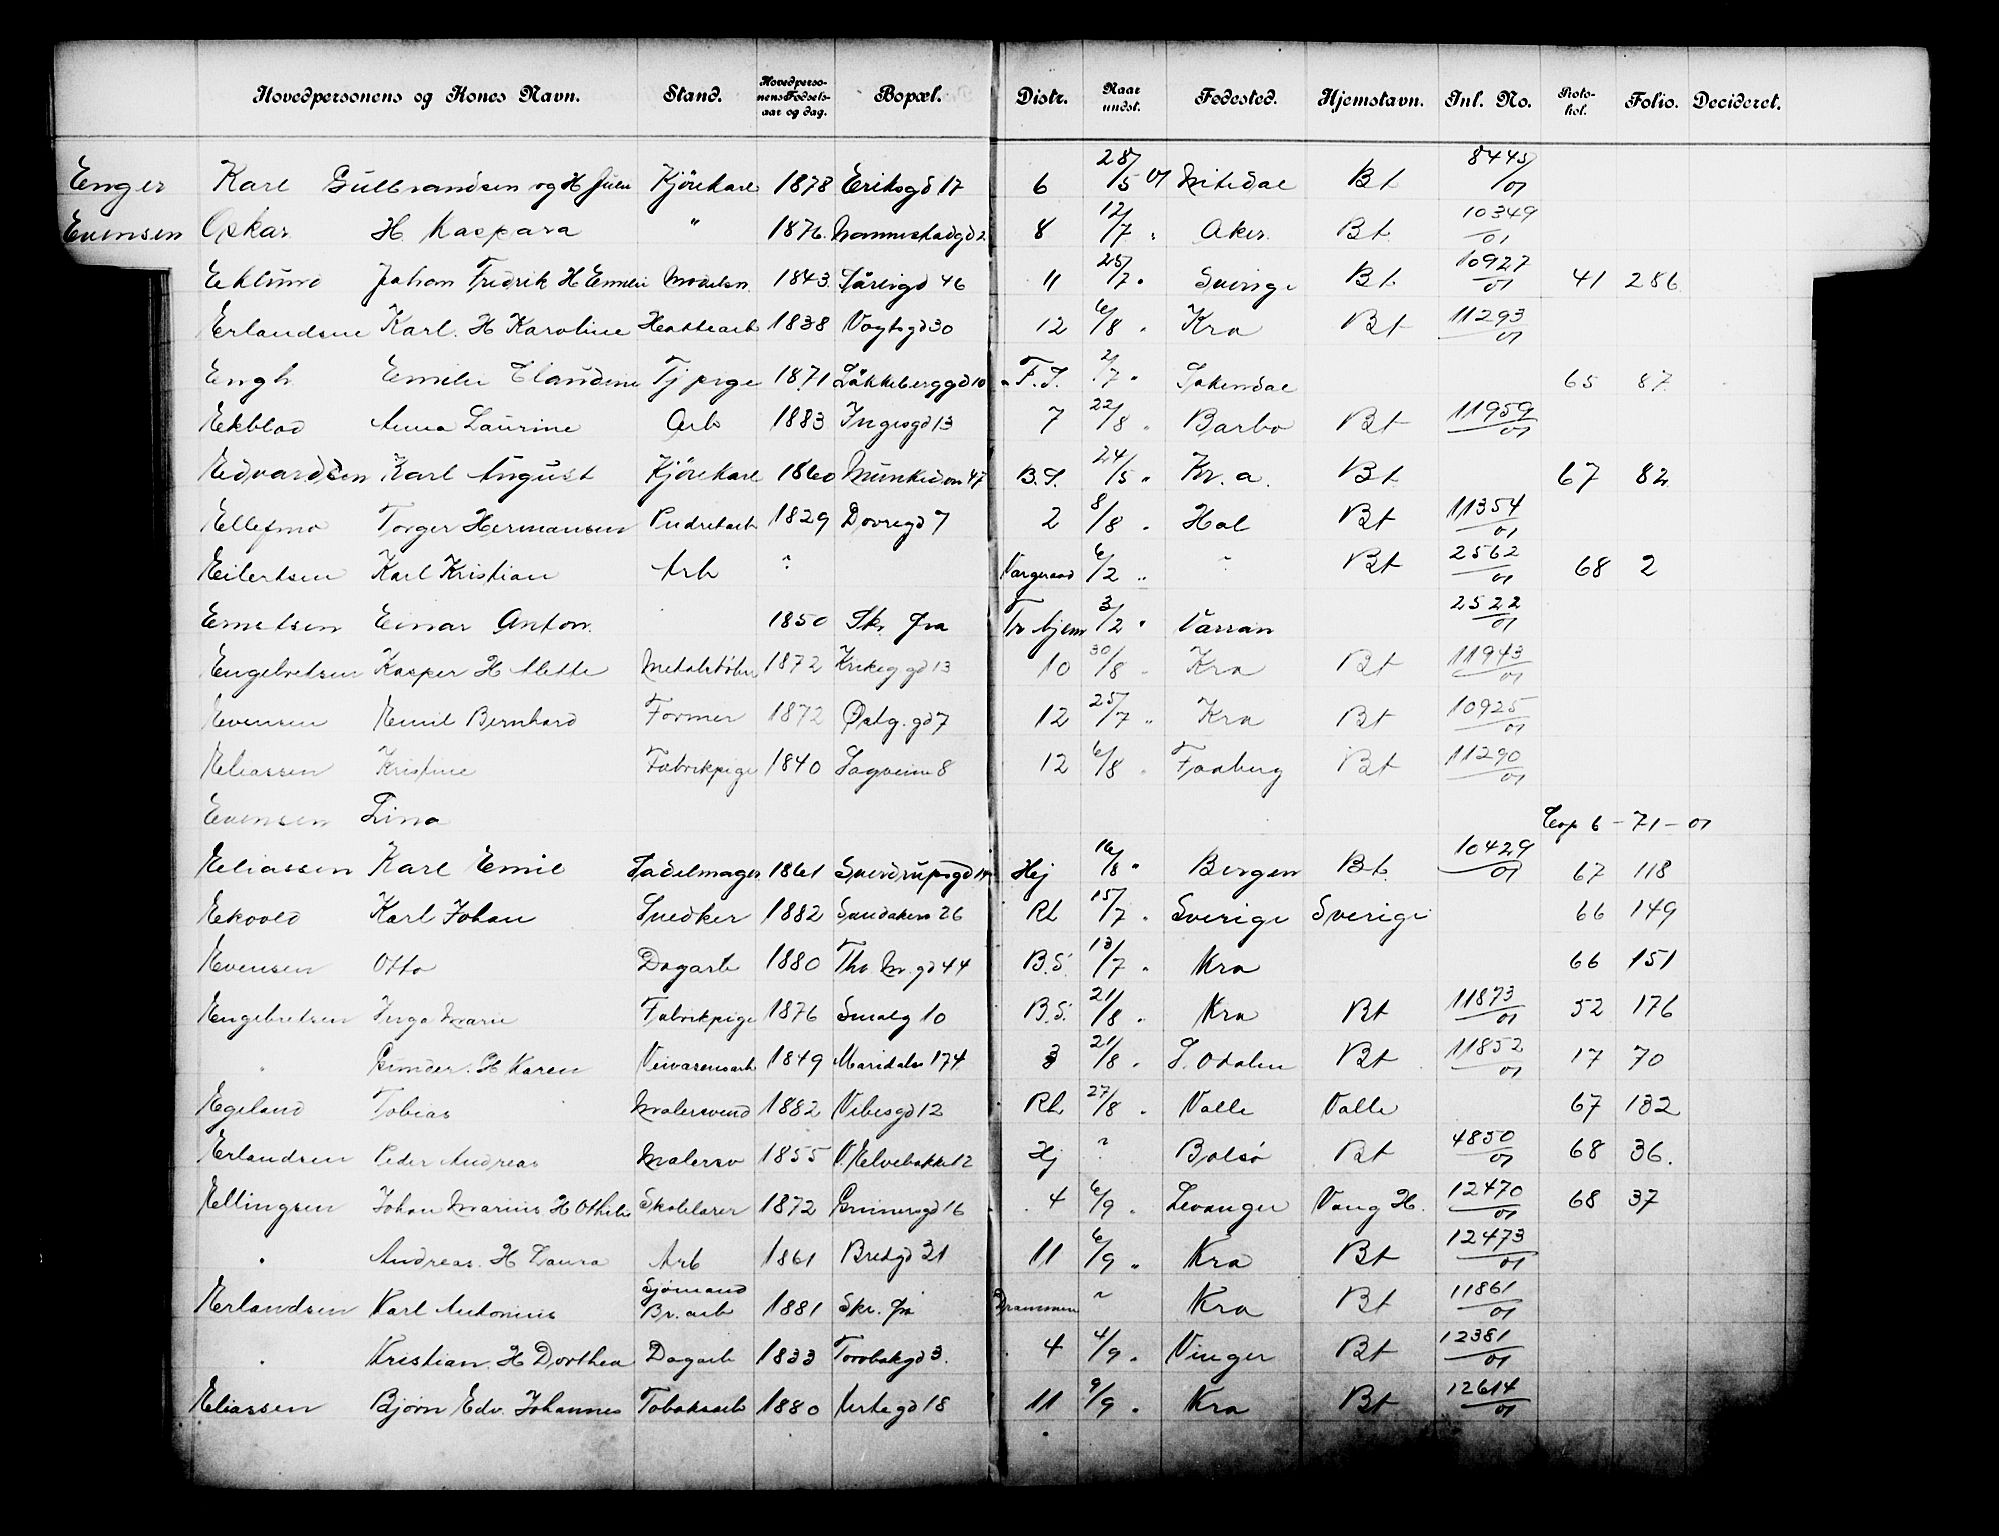 Hovedpersonens og Kones Navn. Stand. Hovedpersonens Fødselsaar og dag. Bopæl. Distr. Naar undst. Fødested. Hjemstavn. Inl. No. Protokol. Folio. Decideret.
Enger Karl Gulbrandsen og H Julie Kjørekarl 1878 Eriksgd 17 6 28/5 01 Nitedal Bt 8445/01
Evensen Oskar H Kaspara " 1876. Mannestadgd 2 8 12/7 " Aker Bt 10349/01
Eklund Johan Fredrik H Emilie Modelsn. 1843 Sørligd 46 11 25/7 " Sverige Bt 10927/01 41 286
Erlandsen Karl. H Karoline Hattearb 1838 Vogtsgd 30 12 6/8 " Kra Bt 11293/01
Engh Emilie Claudine Tj pige 1871 Løkkeberggd 10 F. S. 2/7 " Sokendal 65 87
Ekblad Anna Laurine Arb 1883 Ingesgd 13 7 22/8 " Barbo Bt 11959/01
Edvardsen Karl August Kjørekarl 1860 Munkedvn 47 B. S. 24/5 " Kr. a. Bt 67 82
Ellefmo Torger Hermansen Pudretarb 1829 Dovregd 7 2 8/8 " Hol Bt 11354/01
Eilertsen Karl Kristian Arb ? 6/2 " Bt 2562/01 68 2
Ernetsen Einar Anton 1850 Skr. fra Tr. hjem 3/2 " Værran 2522/01
Engebretsen Kasper H Mette Metalstøber 1872 Krikeggd 13 10 30/8 " Kra Bt 11943/01
Evensen Emil Bernhard Former 1872 Østg. gd 7 12 25/7 " Kra Bt 10925/01
Eliassen Kristine Fabrikpige 1840 Sagveien 8 12 6/8 " Faaberg Bt 11290/01
Evensen Lina Cop 6 - 71 - 01
Eliassen Karl Emil Sadelmager 1861 Sverdrupsgd Hej 16/8 " Bergen Bt. 10429/01 67 118
Ekvold Karl Johan Snedker 1882 Sandakerv 26 Rh 15/7 " Sverige Sverige 66 149
Evensen Otto Dagarb 1880 Thv M. gd 44 B. S. 13/7 " Kra 66 151
Engebretsen Inga Marie Fabrikpige 1876 Smalg 10 B. S. 21/8 " Kra Bt 11873/01 52 176
" Gunder. H Karen Veivæsensarb 1849 Maridalsv 174 3 21/8 " S. Odalen Bt 11852/01 17 70
Egeland Tobias Malersvend 1882 Vibesgd 12 Rh 27/8 " Valle Valle 67 132
Erlandsen Peder Andreas Malersv 1855 V. Elvebakke 12 Hj ? Bolsø Bt 4850/01 68 36.
Ellingsen Johan Marius H Othilie Skolelærer 1872 Grünersgd 16 4 6/9 " Levanger Vang H. 12470/01 68 37
" Andreas. H Laura Arb 1861 Bredgd 21 11 6/9 " Kra Bt 12473/01
Erlandsen Karl Antonius Sjømand Br. arb 1881 Skr. fra Drammen ? Kra Bt 11861/01
" Kristian. H Dorthea Dagarb 1833 Torvbakgd 3. 4 4/9 " Vinger Bt 12381/01
Eliassen Bjørn Edv. Johannes Tobaksarb 1880 Urtegd 18 11 9/9 " Kra Bt 12614/01